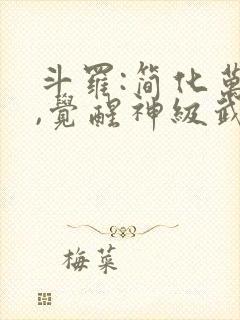 斗羅:簡化萬
,覺醒神級武
梅菜